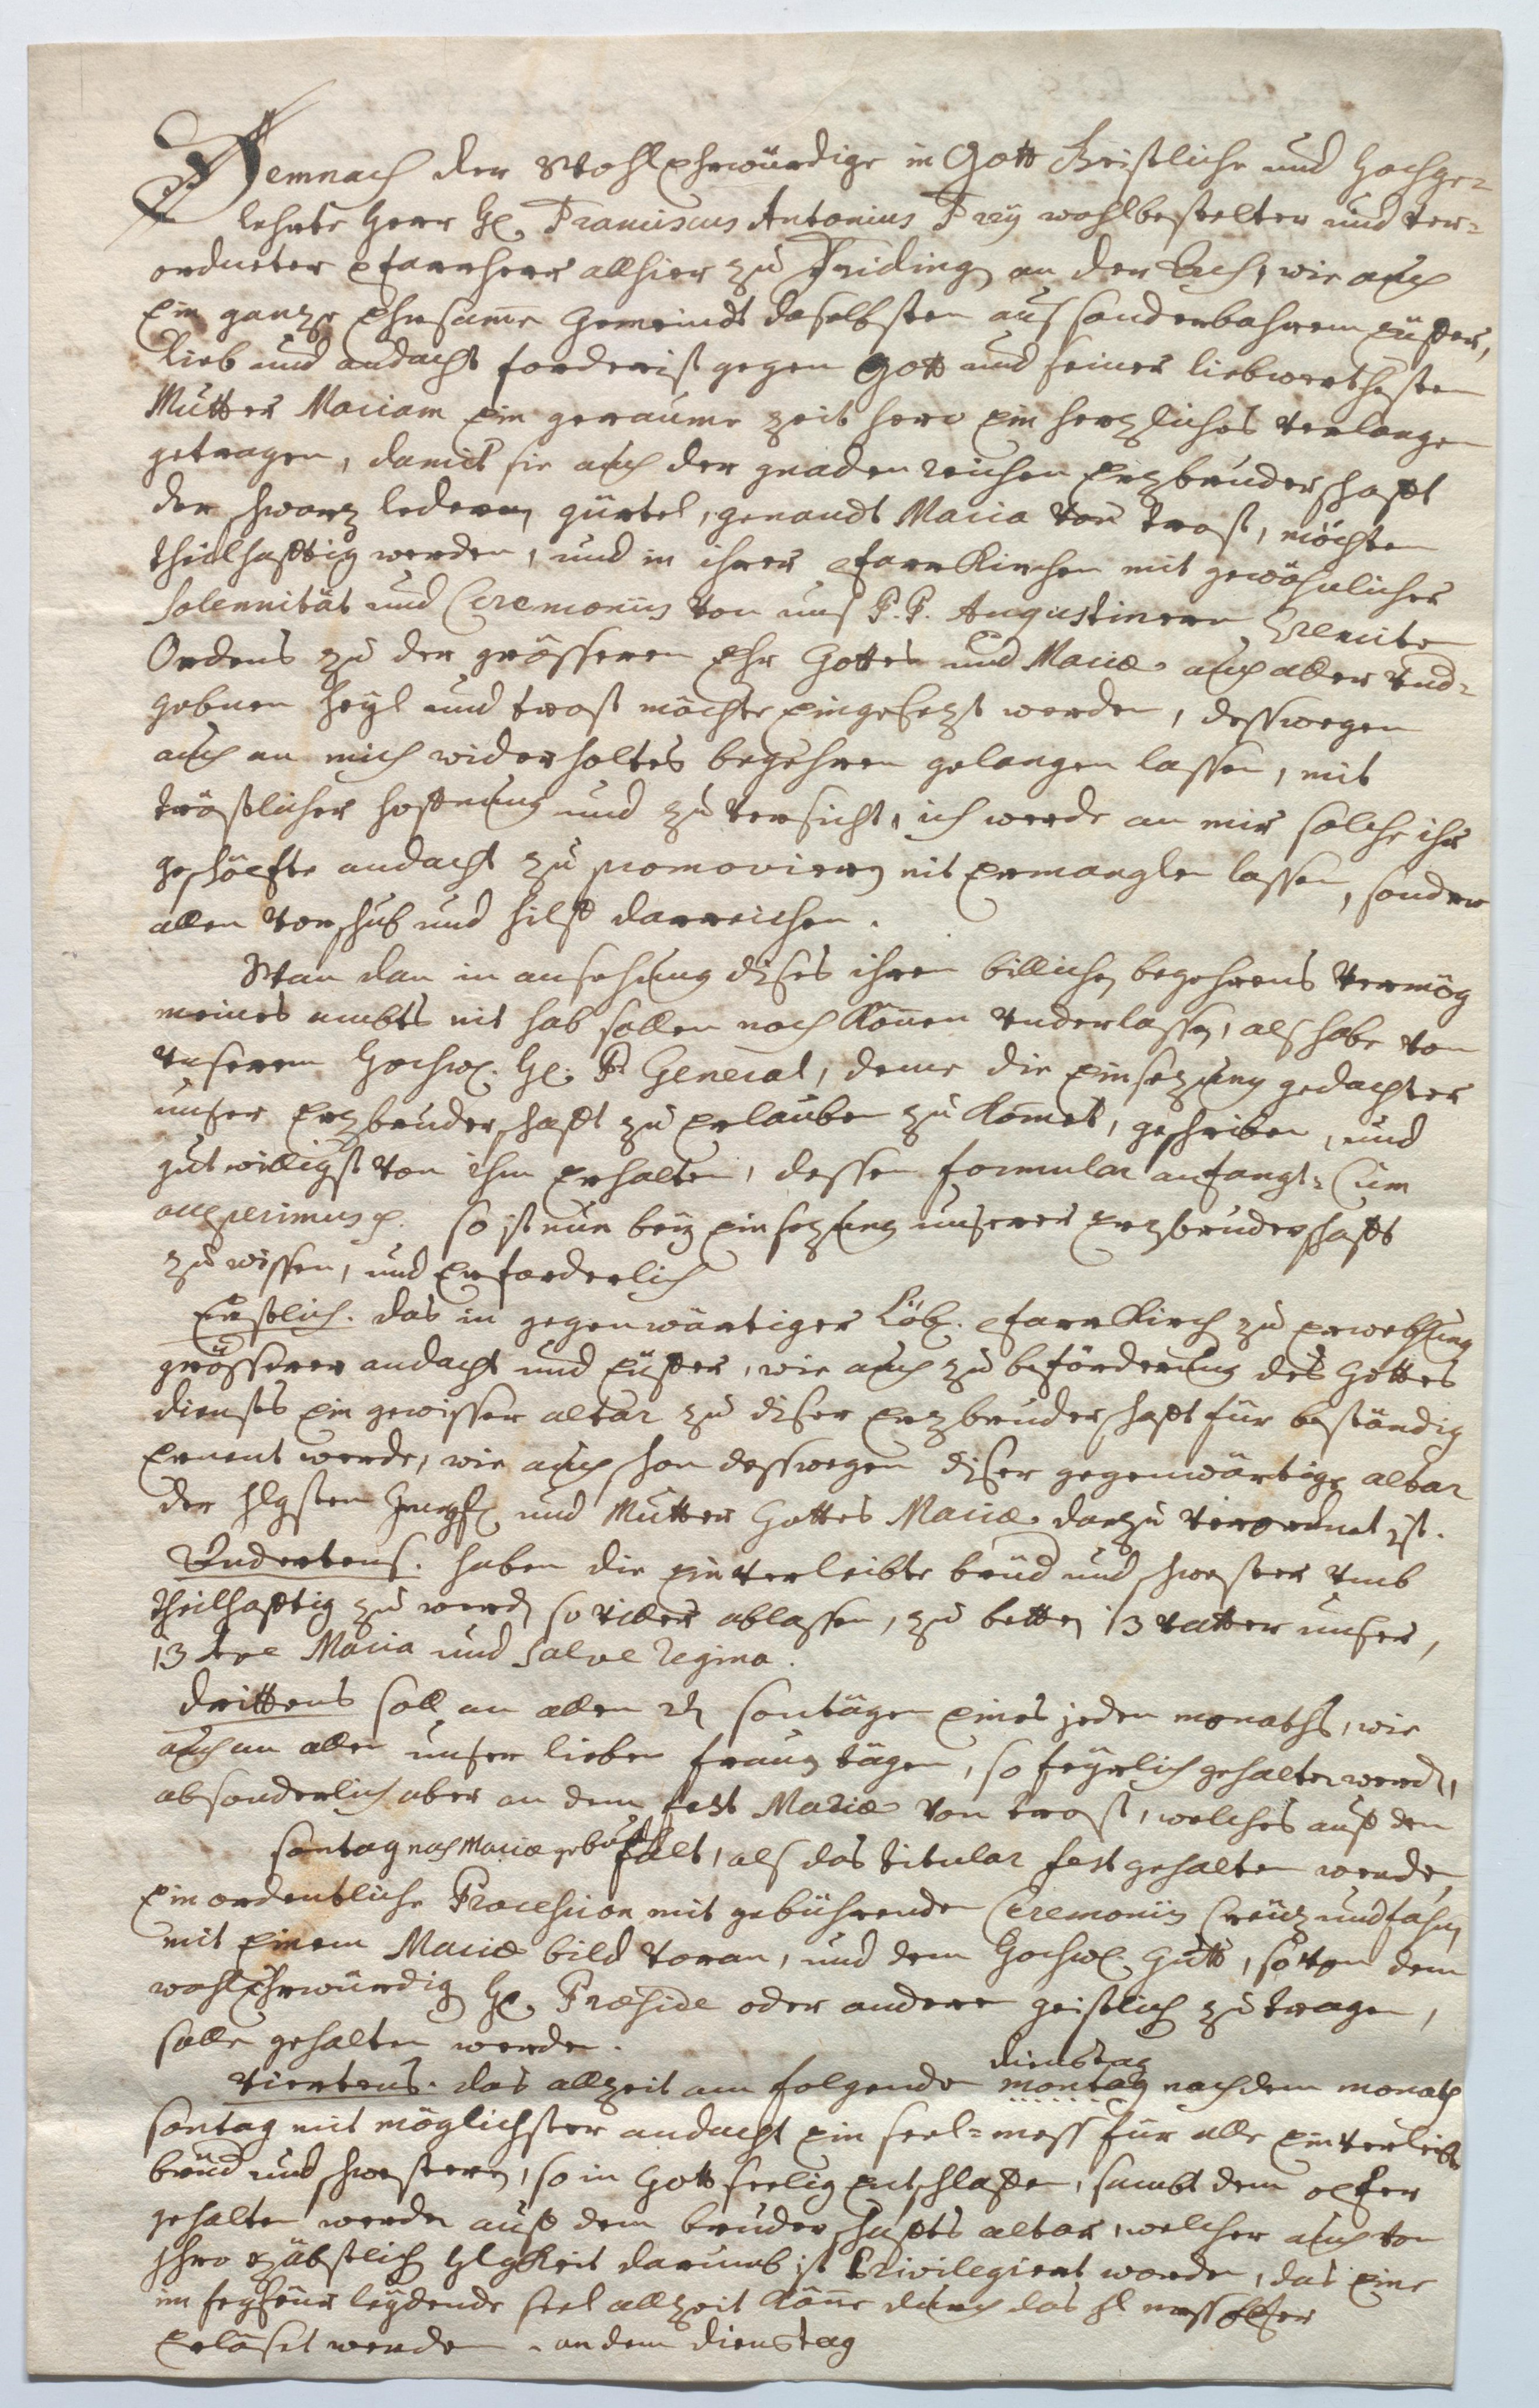 Demnach der WohlEhrwürdige in Gott Geistliche und Hochge-
lehrte Herr H. Franciscus Antonius Frey wohlbestelter und ver-
ordneter pfarrherr allhier zu Friding an der Aach, wie auch
Ein ganze Ehrsamme Gemeindt daselbsten aus sonderbahrem Eüffer,
Lieb und andacht forderist gegen Gott und seiner liebwerthesten
Mutter Mariam Ein geraume zeit hero Ein herzliches verlangen
getragen, damit sie auch der gnadenreichen Erzbruderschafft
der schwarz ledernen gürtel, genandt Maria von Trost, möchten
theilhafftig werden, und in ihrer pfarrkirchen mit gewöhnlicher
Solennität und Ceremoniis von uns P. P. Augustineren Eremiten
Ordens zu der grösseren Ehr Gottes und Mariæ auch aller vnd-
gebnen heyl und trost möchte Eingesezt werden, desswegen
auch an mich widerholtes begehren gelangen lassen, mit
tröstlicher hoffnung und zuversicht, ich werde an mir solche ihr
geschöpfte andacht zu promovieren nit Ermanglen lassen, sonder
allen vorschub und hilff darreichen.
Wan dan in ansehung dises ihren billichen begehrens vermög
meines ambts nit hab sollen noch können vnderlassen, als habe von
vnserem Hochw. H. P. General, deme die Einsezung gedachter
unser Erzbruderschafft zu Erlauben zu kommet, geschriben, und
gutwilligst von ihm Erhalten, dessen formular anfangt: Cum
accepimus p. so ist nun bey Einsezung unserer Erzbruderschafft
zu wissen, und Erforderlich
Erstlich. das in gegenwärtiger Löb. pfarrkirch zu Erwekhung
grösserer andacht und Eüffer, wie auch zu beförderung des Gottes
diensts Ein gewisser altar zu diser Erzbruderschafft für beständig
Ernent werde, wie auch schon desswegen diser gegenwärtige altar
der hlgsten Jungf. und Mutter Gottes Mariæ darzu verordnet ist.
Andertens. haben die Einverleibte brüd und schwester vmb
theilhafftig zu werden so viller ablassen, zu betten 13 vatter unser,
13 Ave Maria und Salve Regina.
Drittens soll an allen sontägen Eines jeden monaths, wie
auch an allen unser lieben frauen tägen, so feyrlich gehalten werden,
absonderlich aber an dem fest Mariæ von trost, welches auff den
sontag nach Mariæ geburt falt, als das titular fest gehalten werde,
Ein ordentliche Procession mit gebührende Ceremoniis Creüz und fahn,
mit Einem Mariæ bild voran, und dem Hochw. Gutt, so von dem
wohlEhrwürdig H. Præside oder andere geistlich zu tragen,
solle gehalten werde.
Viertens. das allzeit am folgende montag nach dem monath
dienstag
sontag mit möglichster andacht Ein seel-mess für alle Einverleibte
brüd und schwesteren, so in Gott seelig Entschlaffen, sambt dem opfer
gehalten werde auff dem bruderschaffts altar, welcher auch von
ihro päbstlich hlgkeit darumb ist Privilegiert worden, das Eine
im fegfeür leydende seel allzeit könne durch das hl messopfer
Erlöset werden. an dem Dienstag